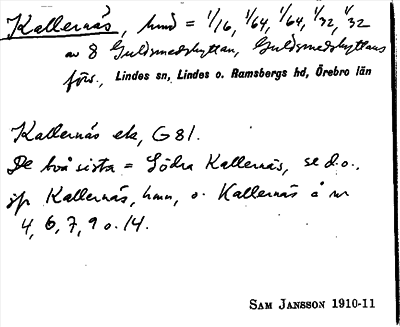 Kallernäs, hmd = 1/16, 1/64, 1/64, 1/32, 1/32
av 8 Guldsmedshyttan, Guldsmedshyttans
förs., Lindes sn, Lindes o. Ramsbergs hd, Örebro län
Kallernäs ek, G 81.
De två sista = Södra Kallernäs, se d.o.,
jfr Kallernäs, hmn, o. Kallernäs å nr
4, 6, 7, 9 o. 14.
SAM JANSSON 1910-11